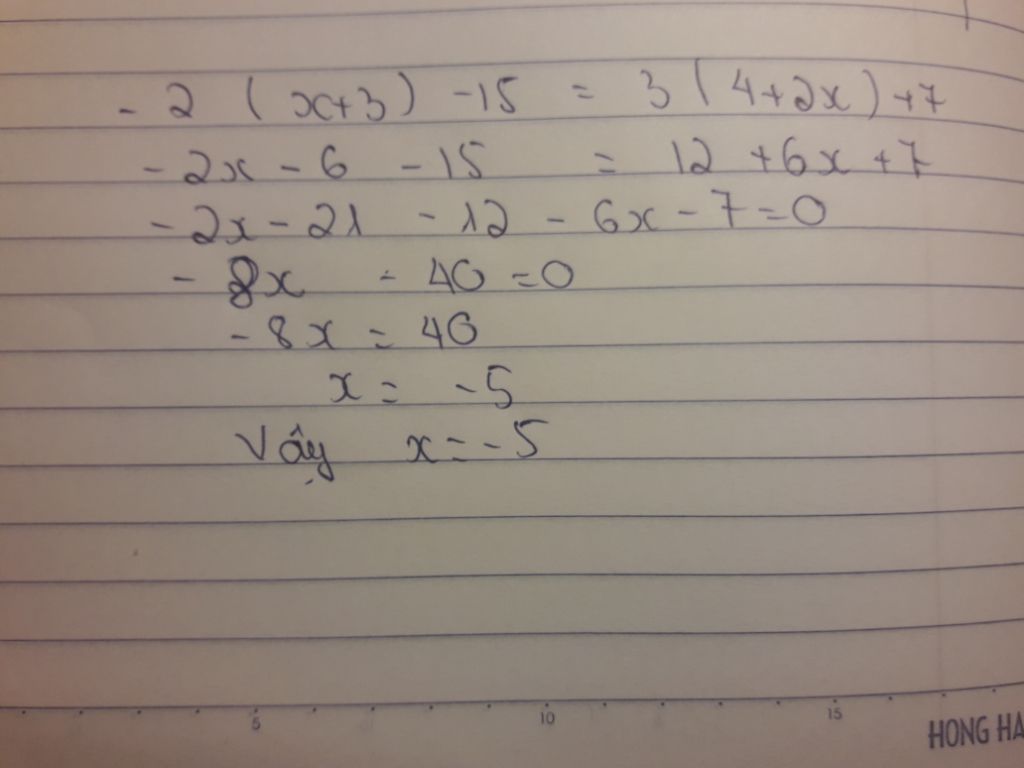 - 2 (x+3) -15 = 3(4+2x)+7
-2x - 6 - 15 = 12 +6x +7
-2x - 21 - 12 - 6x - 7 = 0
- 8x - 40 = 0
- 8x = 40
x = -5
Vậy x = -5
5 10 15
HONG HA